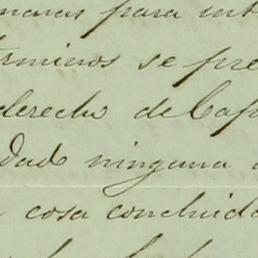 para
terminos se pre
derecho de Cap
dad ninguna
cosa concluida